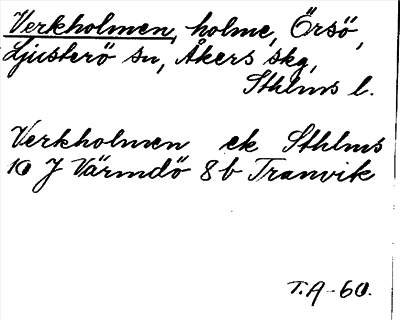 Verkholmen, holme, Örsö,
Ljusterö sn, Åkers skg,
Sthlms l.
Verkholmen ek Sthlms
10 J Värmdö 8b Tranvik
T.A-60.